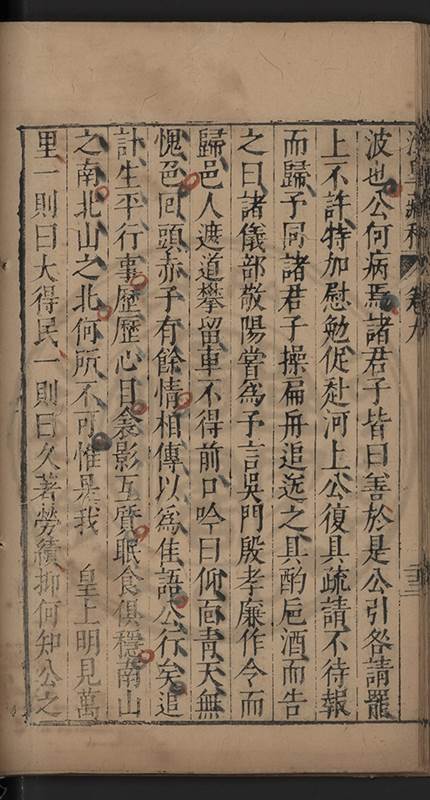 卷九
波也公何病焉諸君子皆曰善於是公引咎請罷
上不許特加慰勉促赴河上公復具疏請不待報
而歸予同諸君子操扁舟追送之具酌巵酒而告
之曰諸儀部敬陽嘗為予言吳門殷孝廉作令而
歸邑人遮道攀留車不得前口吟曰仰面青天無
愧邑回頭赤子有餘情相傳以為佳語公行矣追
計生平行事歷歷心目衾影互質眠食俱穩南山
之南北山之北何所不可惟是我 皇上明見萬
里一則曰大得民一則曰久著勞績抑何知公之